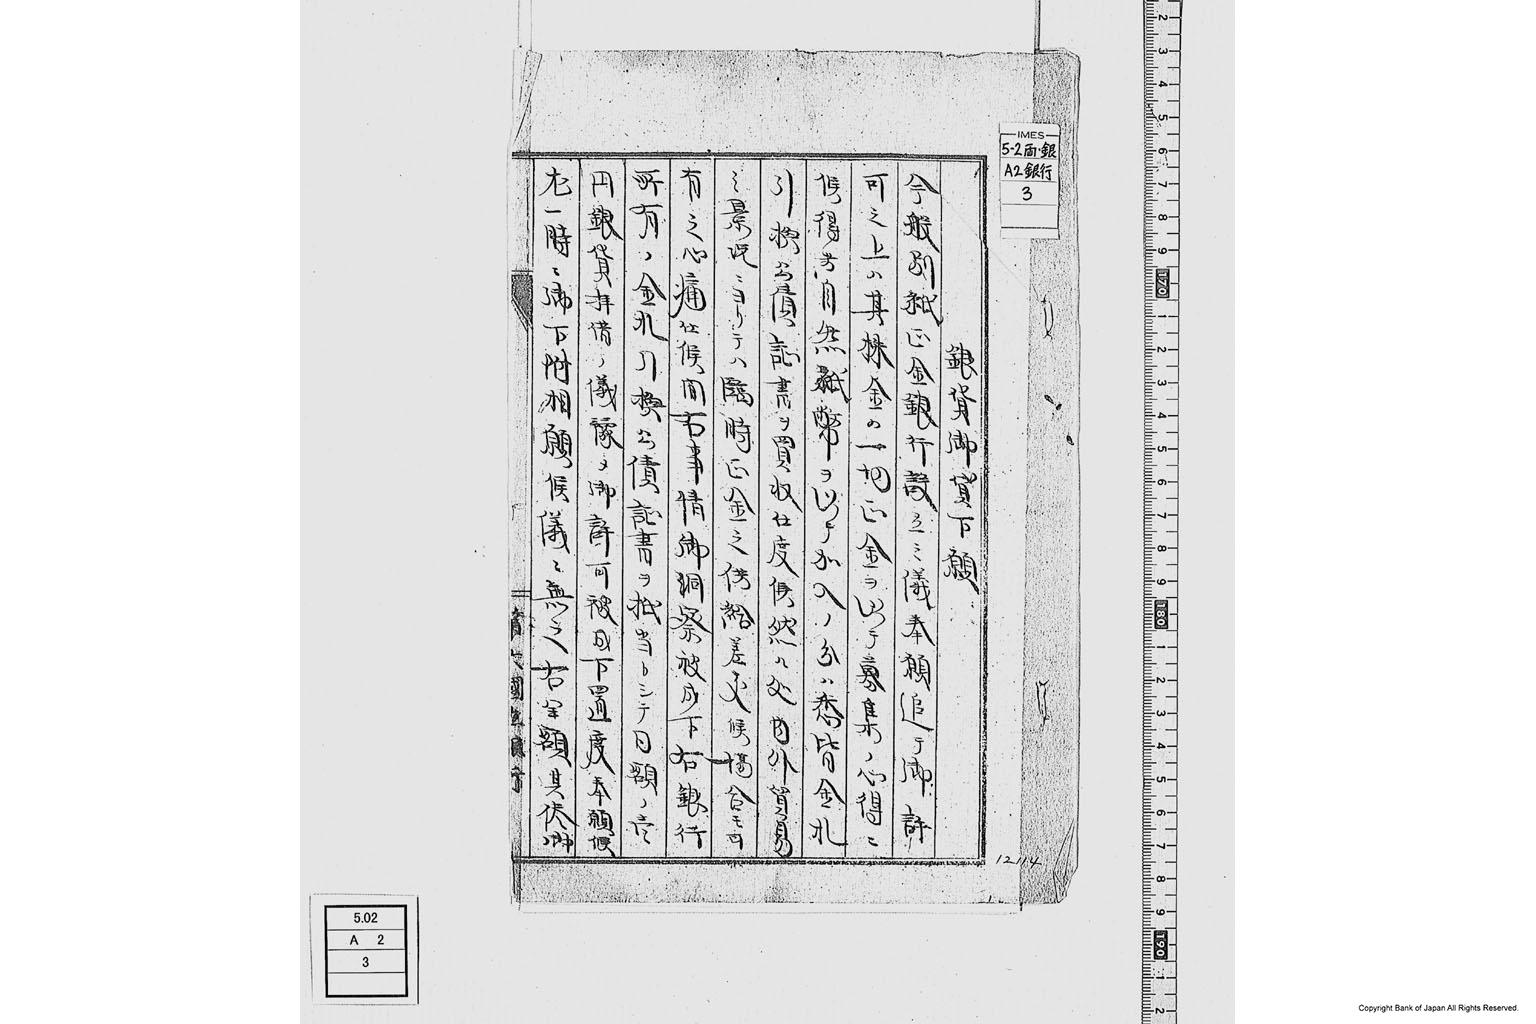 銀貨御貸下願
今般別紙正金銀行設立之儀奉願追テ御許
可之上ハ其株金の一切正金ヲ以テ募集ノ心得ニ
候得共自然紙幣ヲ以テ加入ノ分ハ悉皆金札
引換公債証書ヲ買収仕度候然ル処内外貿易
之景況ニヨリテハ臨時正金之供給差支候場合モ可
有之心痛仕候間右事情御洞察被成下右銀行
所有ノ金札引換公債証書ヲ抵当トシテ同額ノ壱
円銀貨拝借ノ儀豫メ御許可被成下置度奉願候
尤一時ニ御下附相願候儀ニ無之右全額其侭御
IMES
5-2両・銀
A2銀行
3
12114
5.02
A 2
3
Copyright Bank of Japan All Rights Reserved.